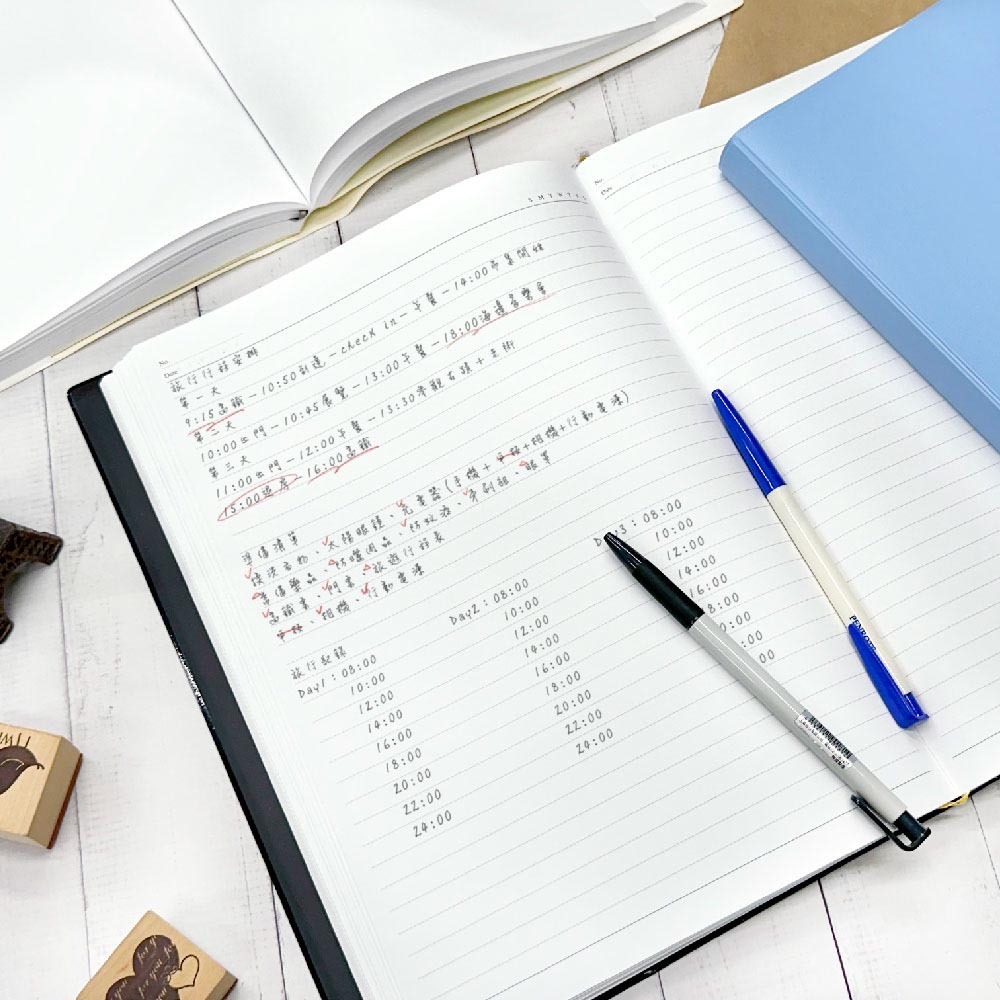 No.
Date
S M T W T F S
旅行行程安排
第一天
9:15高鐵-10:50到達-check in-午餐-14:00市集開始
第二天
10:00出門-10:45展覽-13:00午餐-18:00海邊音樂會
第三天
11:00出門-12:00午餐-13:30參觀古蹟+美術
15:00逛街-16:00高鐵
準備清單
換洗衣物、太陽眼鏡、充電器(手機+平板+相機+行動電源)
常備藥品、防曬用品、防蚊液、牙刷組、眼罩
高鐵票、門票、旅遊行程表
平板、相機、行動電源
旅行記錄
Day1:08:00
10:00
12:00
14:00
16:00
18:00
20:00
22:00
24:00
Day2:08:00
10:00
12:00
14:00
16:00
18:00
20:00
22:00
24:00
Day3:08:00
10:00
12:00
14:00
16:00
8:00
:00
:00
00
No.
Date
PENROTE
for y
for you